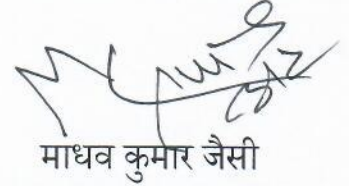 माधव कुमार जैसी